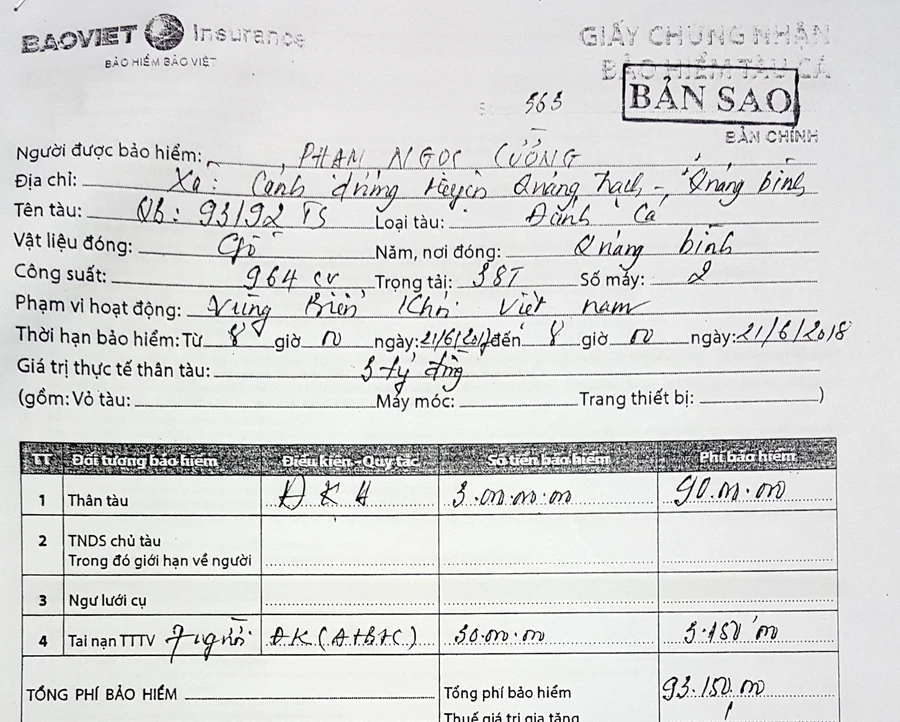 BAOVIET Insurance
BẢO HIỂM BẢO VIỆT
GIẤY CHỨNG NHẬN
BẢO HIỂM TÀU CÁ
BẢN SAO
563
BẢN CHÍNH
Người được bảo hiểm: PHẠM NGỌC CƯỜNG
Địa chỉ: Xã: Cảnh dương Huyện Quảng Trạch - Quảng bình
Tên tàu: Qb: 93192 TS Loại tàu: Đánh Cá
Vật liệu đóng: Gỗ Năm, nơi đóng: Quảng bình
Công suất: 964 cv Trọng tải: 38T Số máy: 2
Phạm vi hoạt động: Vùng Biển Khơi Việt nam
Thời hạn bảo hiểm: Từ 8 giờ 00 ngày: 21/6/2017 đến 8 giờ 00 ngày: 21/6/2018
Giá trị thực tế thân tàu: 3 tỷ đồng
(gồm: Vỏ tàu: Máy móc: Trang thiết bị: )
TT Đối tượng bảo hiểm Điều kiện - Quy tắc Số tiền bảo hiểm Phí bảo hiểm
1 Thân tàu ĐKA 3.00.00.00 90.00.00
2 TNDS chủ tàu
Trong đó giới hạn về người
3 Ngư lưới cụ
4 Tai nạn TTTV 7 người ĐK (A+B+C) 30.00.00 3.150 00
TỔNG PHÍ BẢO HIỂM Tổng phí bảo hiểm 93.150.00
Thuế giá trị gia tăng